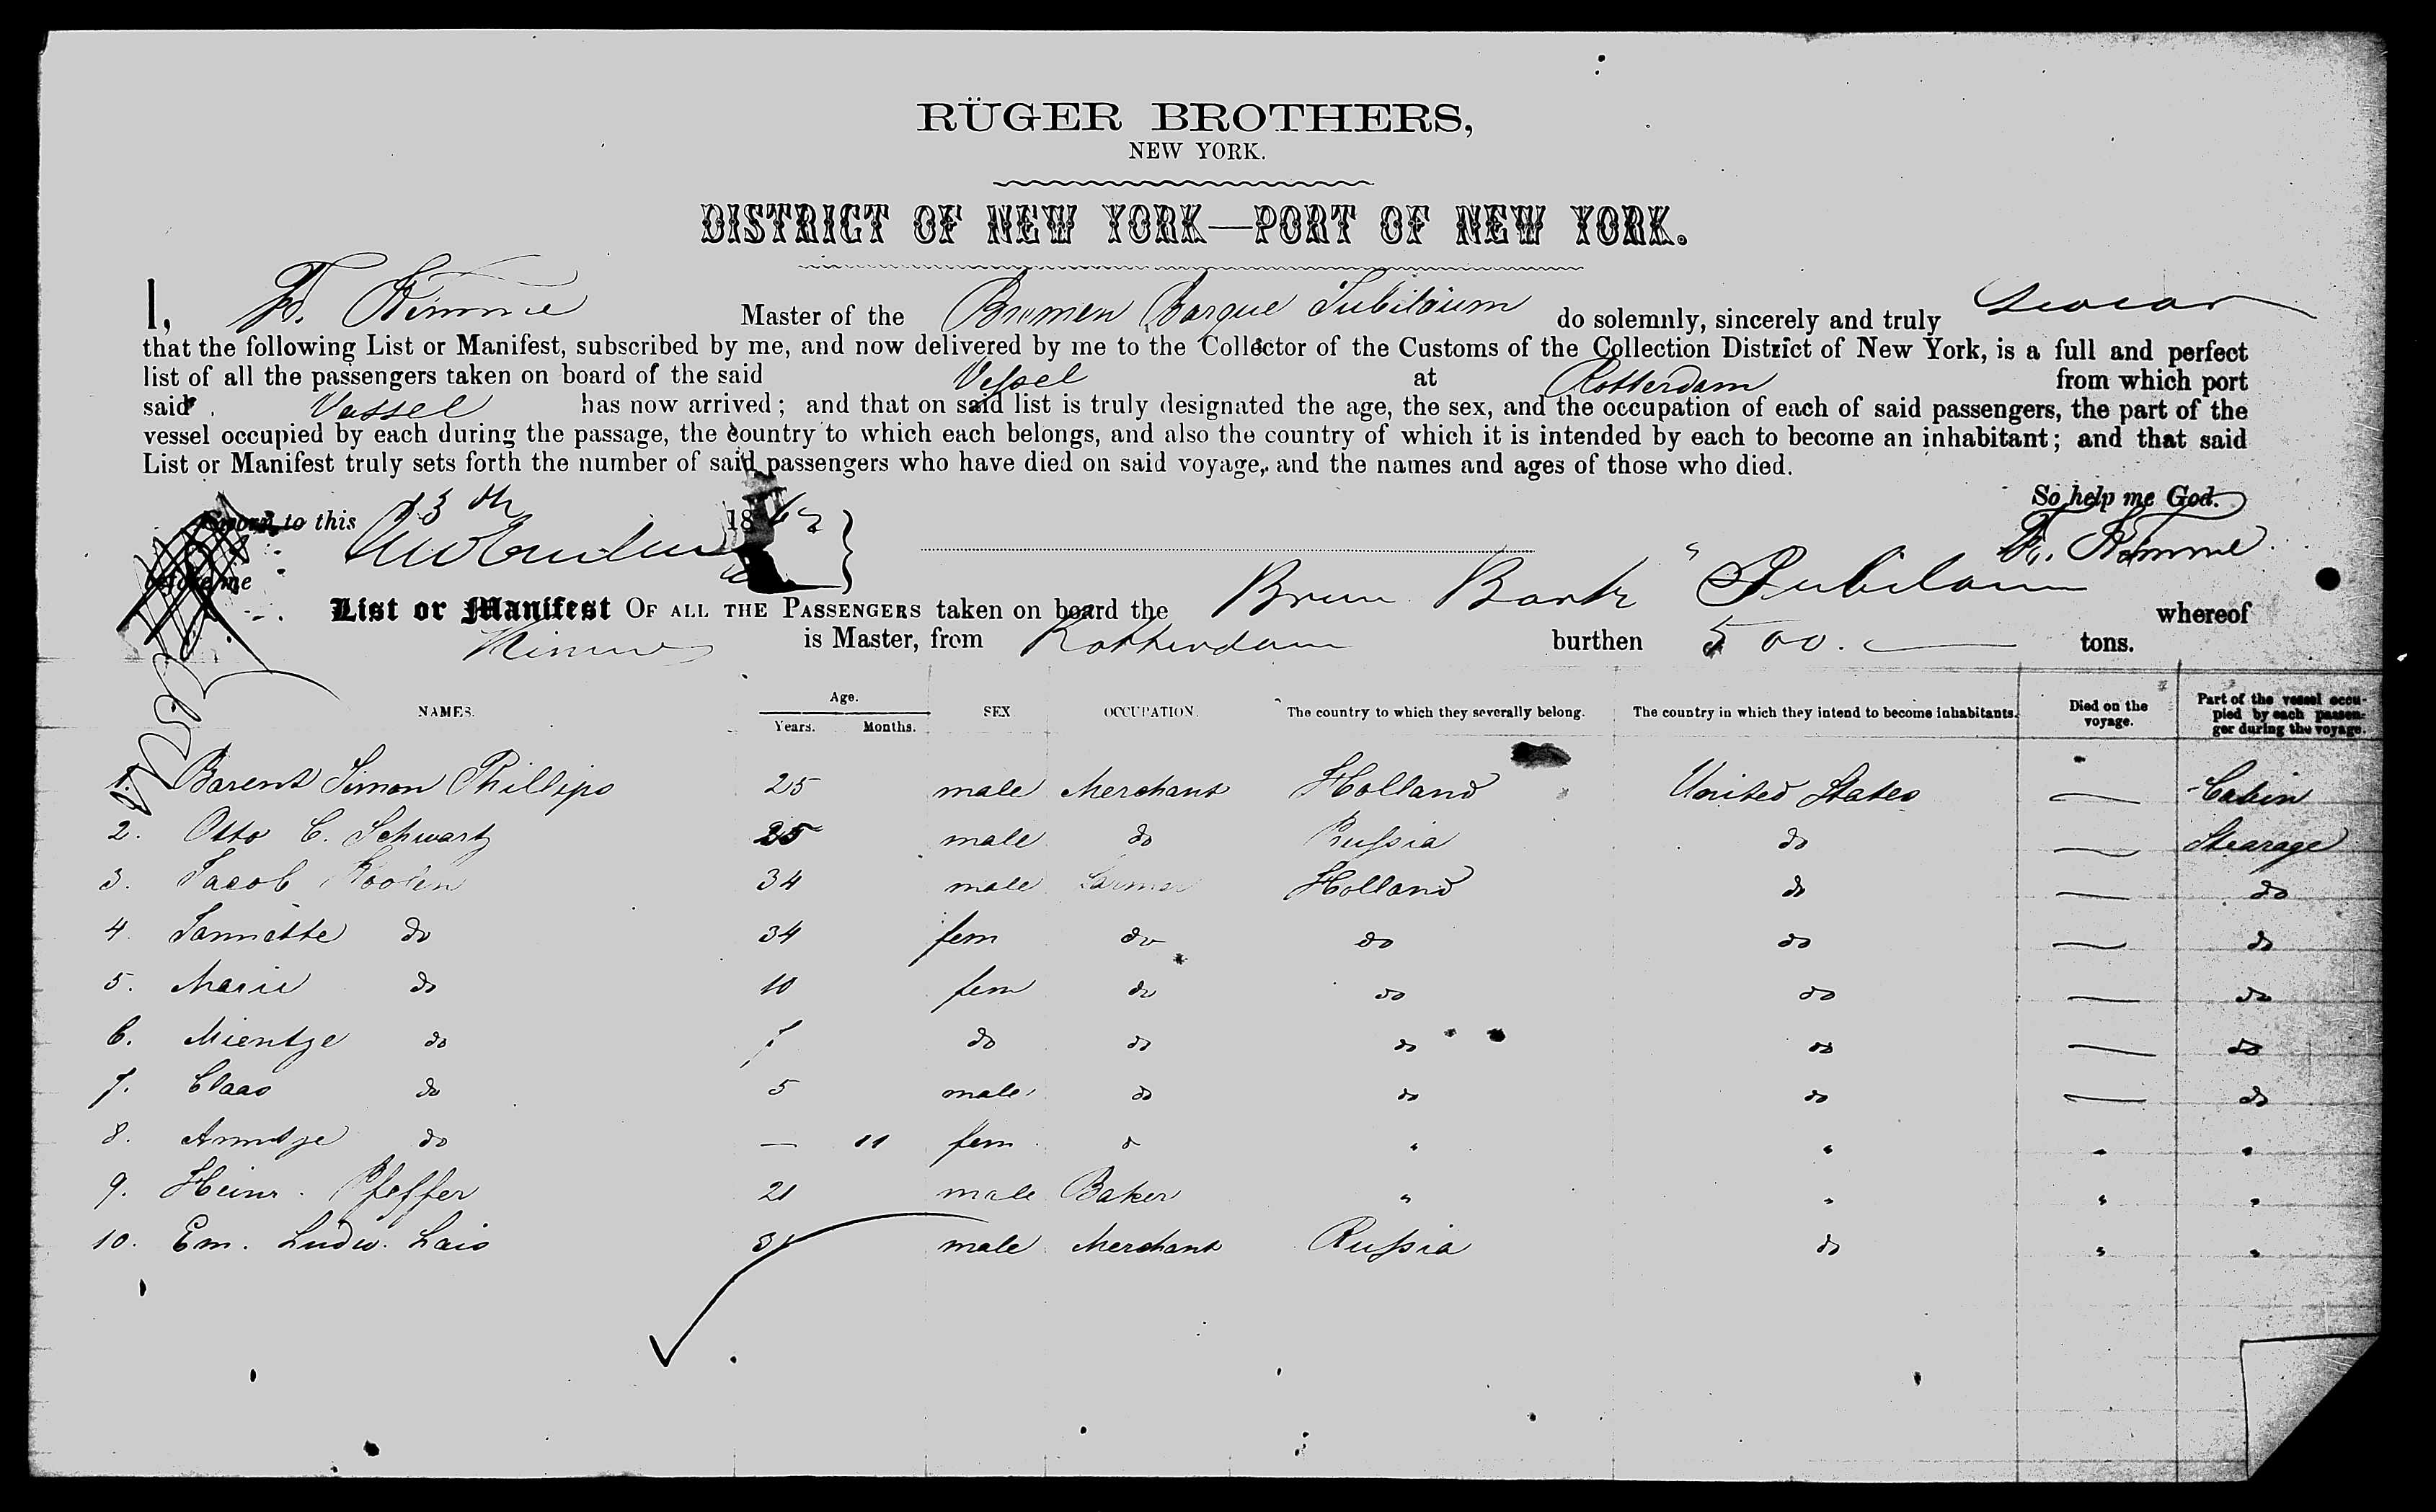 RÜGER BROTHERS,
NEW YORK.
DISTRICT OF NEW YORK—PORT OF NEW YORK.
I, Master of the Bremen Barque Jubiläum do solemnly, sincerely and truly swear
that the following List or Manifest, subscribed by me, and now delivered by me to the Collector of the Customs of the Collection District of New York, is a full and perfect
list of all the passengers taken on board of the said Vessel at Rotterdam from which port
said Vessel has now arrived; and that on said list is truly designated the age, the sex, and the occupation of each of said passengers, the part of the
vessel occupied by each during the passage, the country to which each belongs, and also the country of which it is intended by each to become an inhabitant; and that said
List or Manifest truly sets forth the number of said passengers who have died on said voyage, and the names and ages of those who died.
So help me God.
Sworn to this 13th 18
before me
List or Manifest OF ALL THE PASSENGERS taken on board the Brem Bark "Jubilaum whereof
is Master, from Rotterdam burthen 500. tons.
NAMES. Age. Years. Months. SEX OCCUPATION. The country to which they severally belong. The country in which they intend to become inhabitants. Died on the voyage. Part of the vessel occupied by each passenger during the voyage.
1. Barent Simon Phillips 25 male Merchant Holland United States — Cabin
2. Otto C. Schwartz 25 male do Russia do — Stearage
3. Jacob 34 male Holland do — do
4. Jannette do 34 fem do do do — do
5. Marie do 10 fem do do do — do
6. Mientje do 7 do do do do — do
7. Claas do 5 male do do do — do
8. Anntje do — 11 fem d " " " "
9. Heinr. Pfeffer 21 male Baker " " " "
10. Em. Ludw. Lais male Merchant Russia do " "